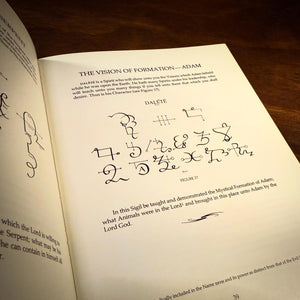 THE VISION OF FORMATION—ADAM
DALETE is a Spirit who will show unto you the Visions which Adam beheld
while he was upon the Earth. He hath many Spirits under his leadership, who
will teach unto you many things if you tell unto them that you
desire. Thus is his Character (see Figure 27).
DALETE
FIGURE 27
In this Sigil be taught and demonstrated the Mystical Formation of Adam,
what Animals were in the Lord¹ and brought in this place unto Adam by the
Lord God.
included in the Name and its power
which the Lord is willing to
e Serpent; what may be his
e can contain in himself at